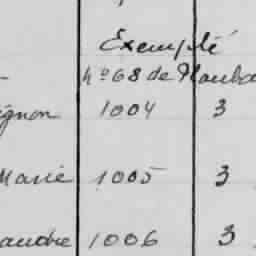 Exempté
No 68 de Maube
ignon 1004 3
Marie 1005 3
andre 1006 3